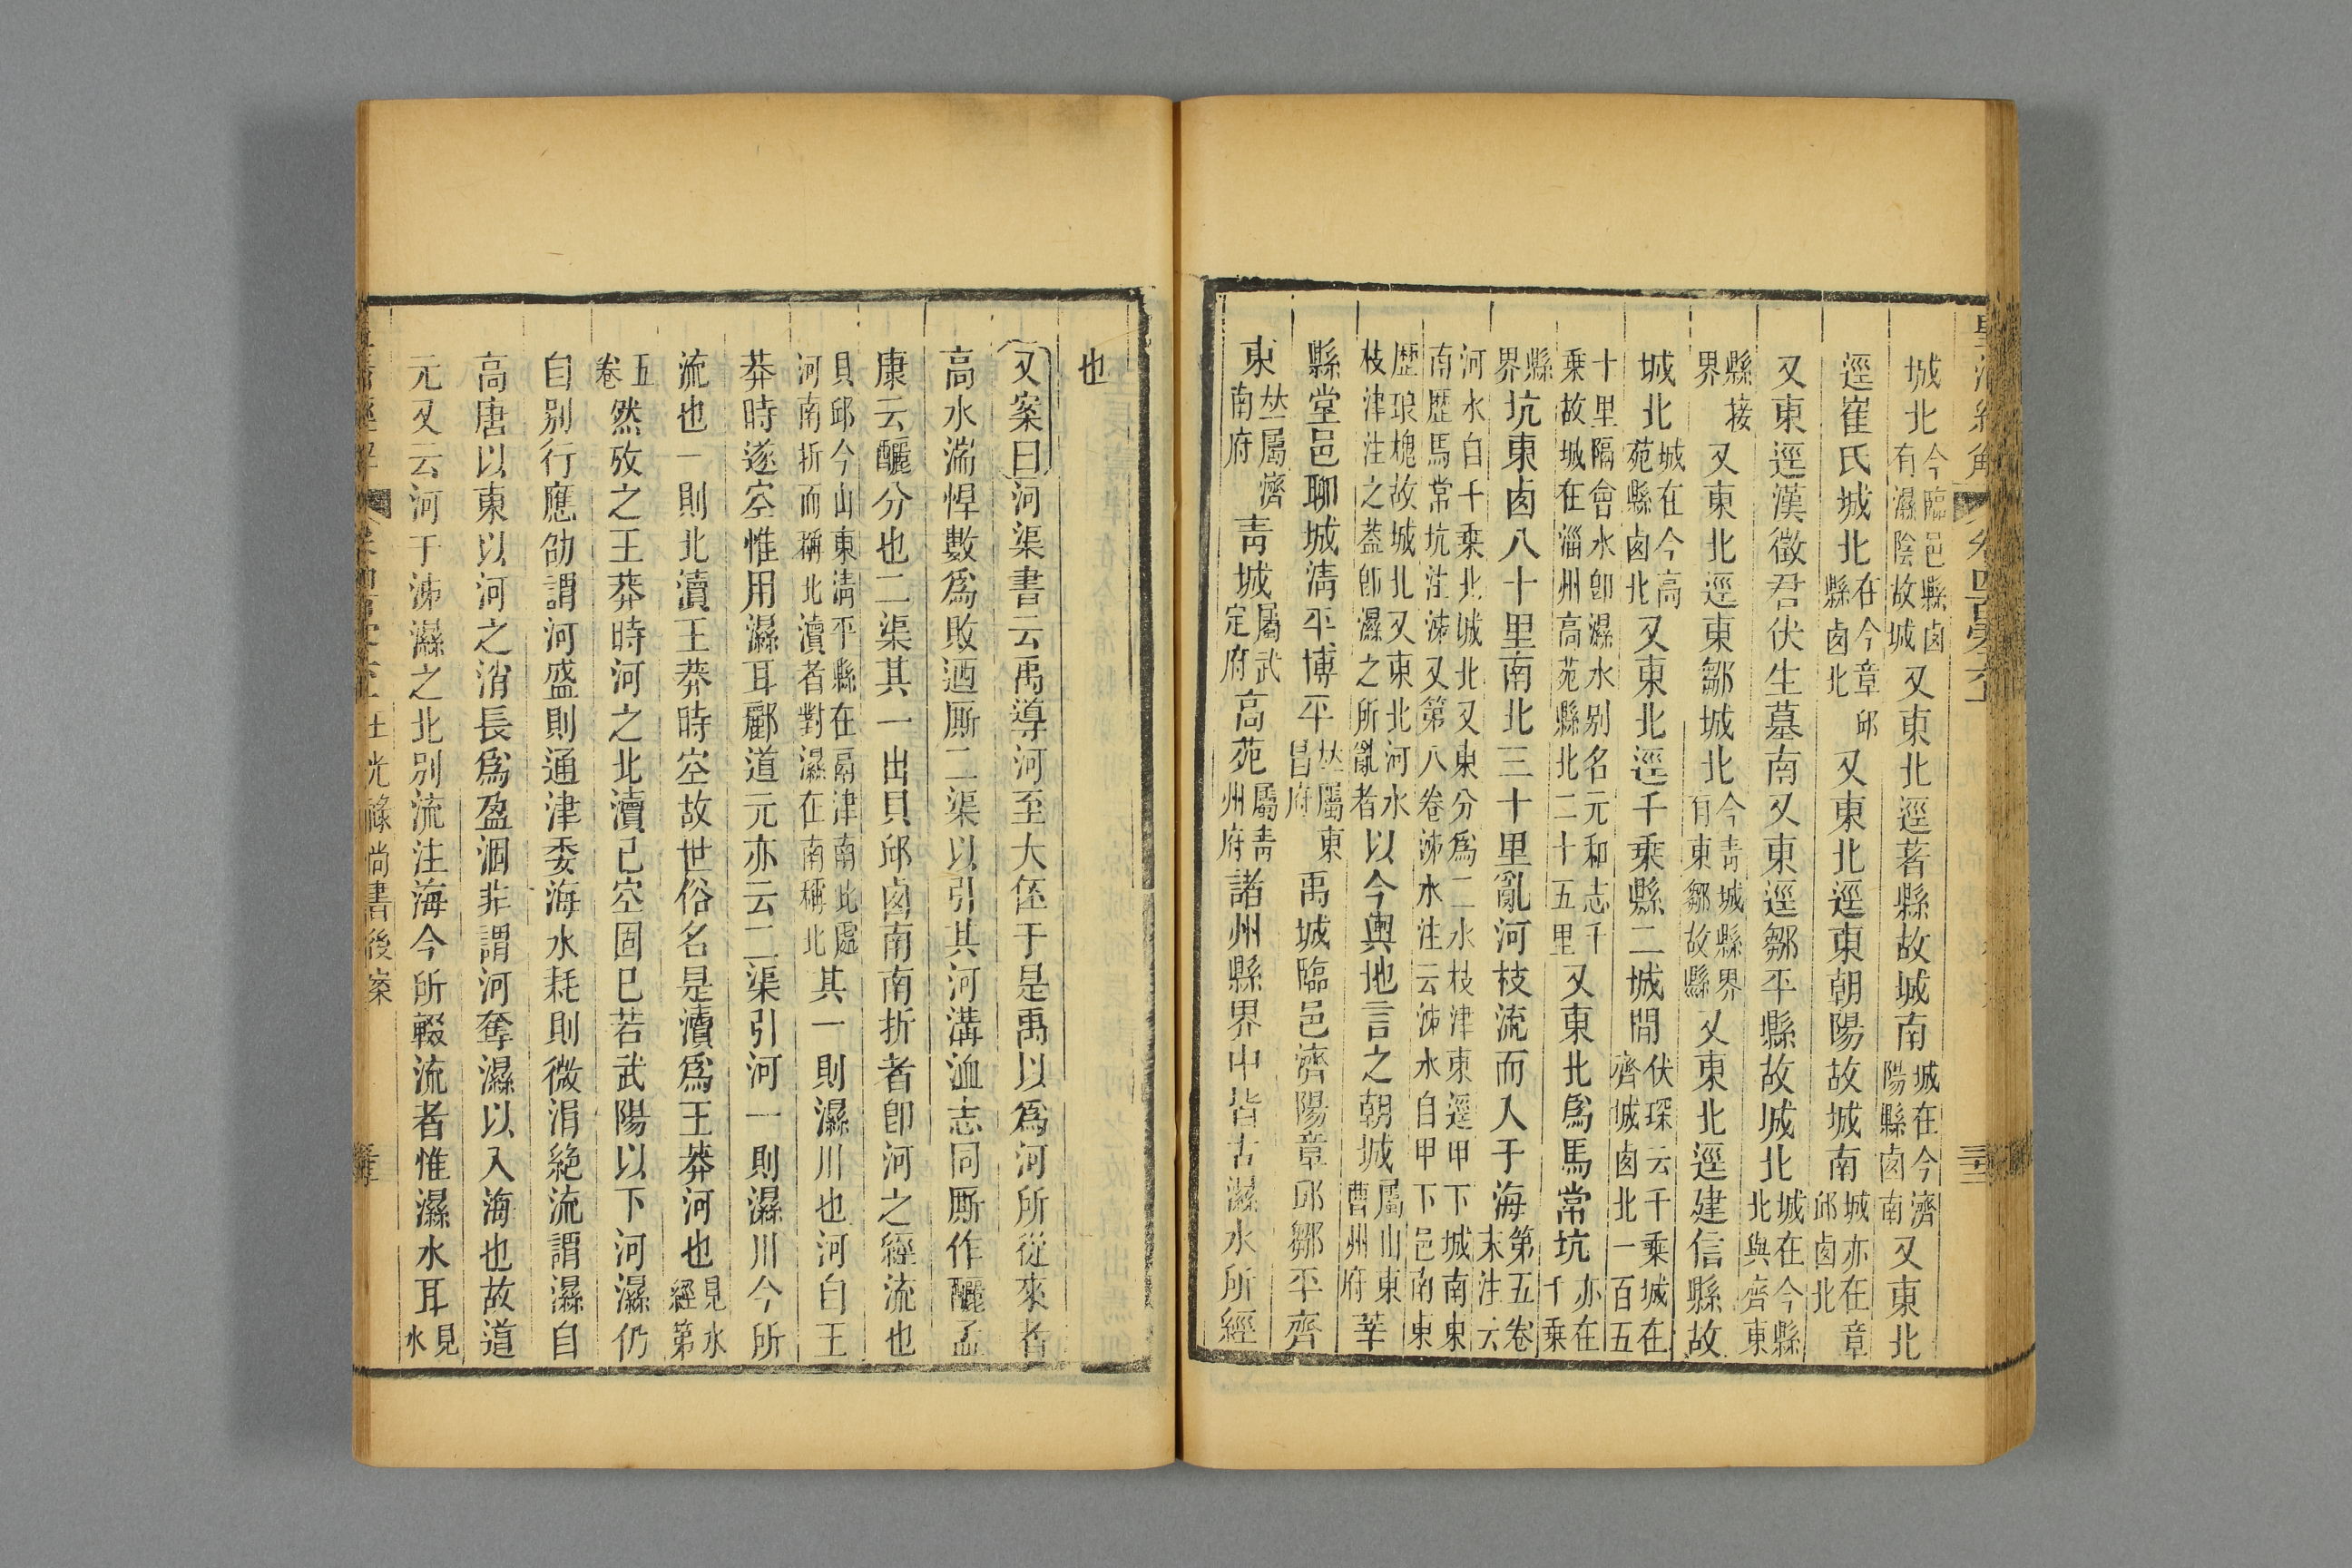 城北今臨邑縣卥有濕陰故城又東北逕著縣故城南城在今濟陽縣卥南又東北
逕崔氏城北在今章邱縣卥北又東北逕東朝陽故城南城亦在章邱卥北
又東逕漢徵君伏生墓南又東逕鄒平縣故城北城在今縣北與齊東
縣接界又東北逕東鄒城北今靑城縣界有東鄒故縣又東北逕建信縣故
城北城在今高苑縣卥北又東北逕千乗縣二城閒伏琛云千乗城在齊城卥北一百五
十里隔會水卽濕水别名元和志千乗故城在淄州高苑縣北二十五里又東北爲馬常坑亦在千乗
縣界坑東卥八十里南北三十里亂河枝流而入于海第五卷末注云
河水自千乗北城北又東分爲二水枝津東逕甲下城南東南歷馬常坑注泲又第八卷泲水注云泲水自甲下邑南東
歷琅槐故城北又東北河水枝津注之葢卽濕之所亂者以今輿地言之朝城屬山東曹州府莘
縣堂邑聊城淸平博平竝屬東昌府禹城臨邑濟陽章邱鄒平齊
東竝屬濟南府靑城屬武定府高苑屬靑州府諸州縣界中皆古濕水所經
也
又案曰河渠書云禹導河至大伾于是禹以爲河所從來者
高水湍悍數爲敗迺厮二渠以引其河溝洫志同厮作釃孟
康云釃分也二渠其一出貝邱卥南南折者卽河之經流也
貝邱今山東淸平縣在鬲津南此處河南折而稱北瀆者對濕在南稱北其一則濕川也河自王
莽時遂空惟用濕耳酈道元亦云二渠引河一則濕川今所
流也一則北瀆王莽時空故世俗名是瀆爲王莽河也見水經第
五卷然攷之王莽時河之北瀆已空固巳若武陽以下河濕仍
自别行應劭謂河盛則通津委海水耗則微涓絶流謂濕自
高唐以東以河之消長爲盈涸非謂河奪濕以入海也故道
元又云河于泲濕之北别流注海今所輟流者惟濕水耳見水
王光祿尚書後案